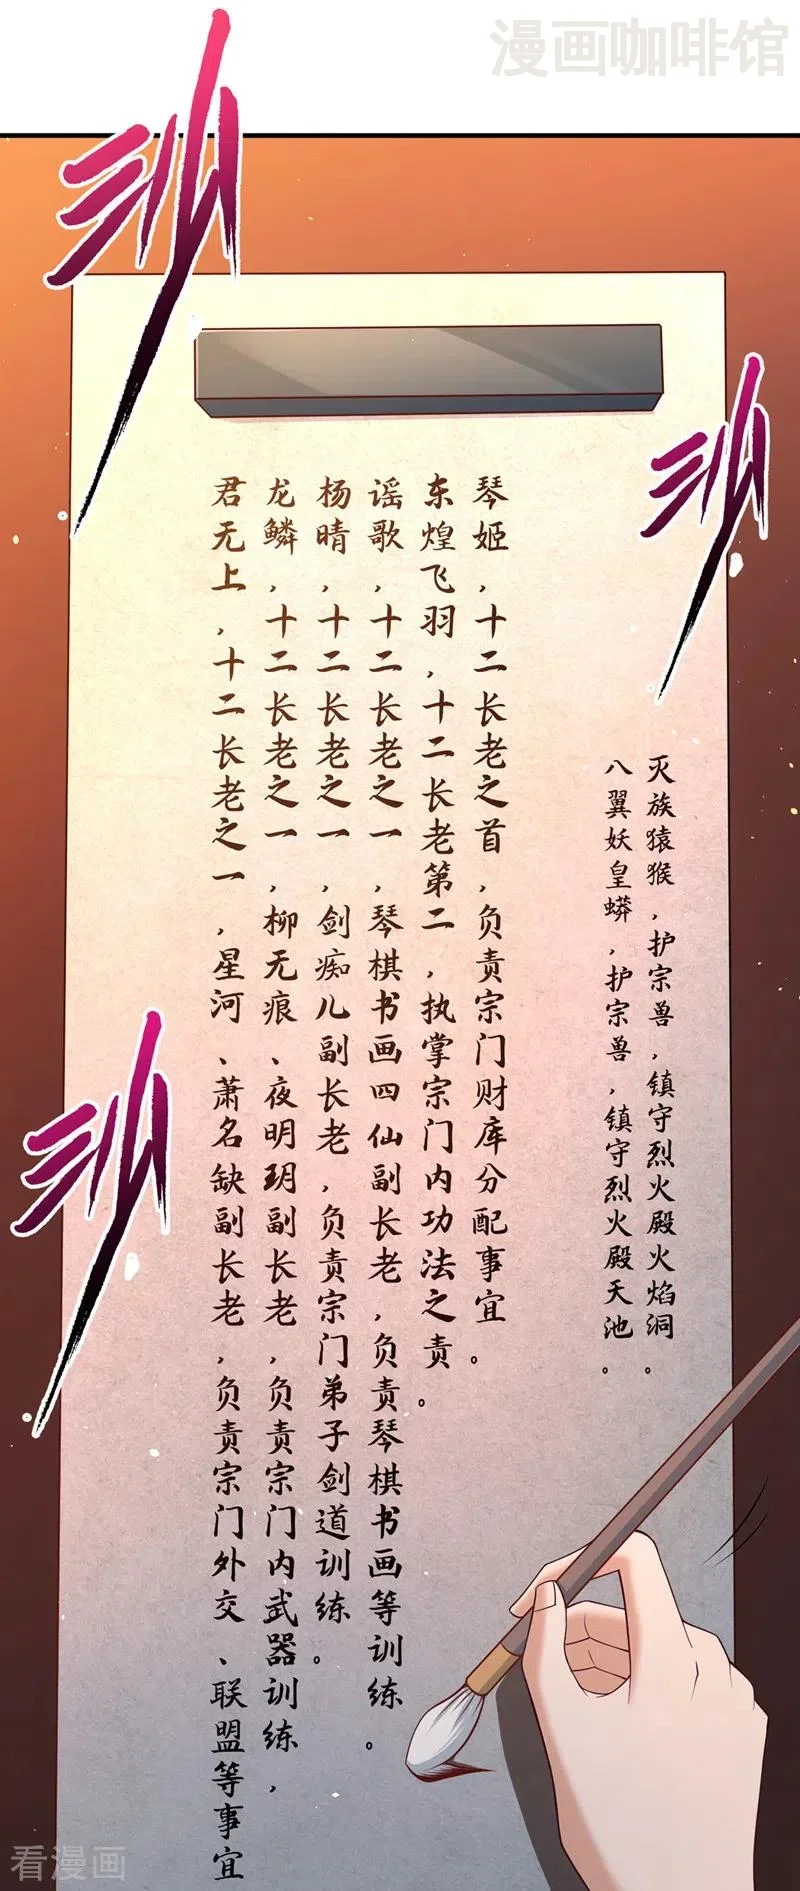 漫画咖啡馆
灭族猿猴，护宗兽，镇守烈火殿火焰洞。
八翼妖皇蟒，护宗兽，镇守烈火殿天池。
琴姬，十二长老之首，负责宗门财库分配事宜。
东煌飞羽，十二长老第二，执掌宗门内功法之责。
谣歌，十二长老之一，琴棋书画四仙副长老，负责琴棋书画等训练。
杨晴，十二长老之一，剑痴儿副长老，负责宗门弟子剑道训练。
龙鳞，十二长老之一，柳无痕、夜明玥副长老，负责宗门内武器训练，
君无上，十二长老之一，星河、萧名缺副长老，负责宗门外交、联盟等事宜
看漫画